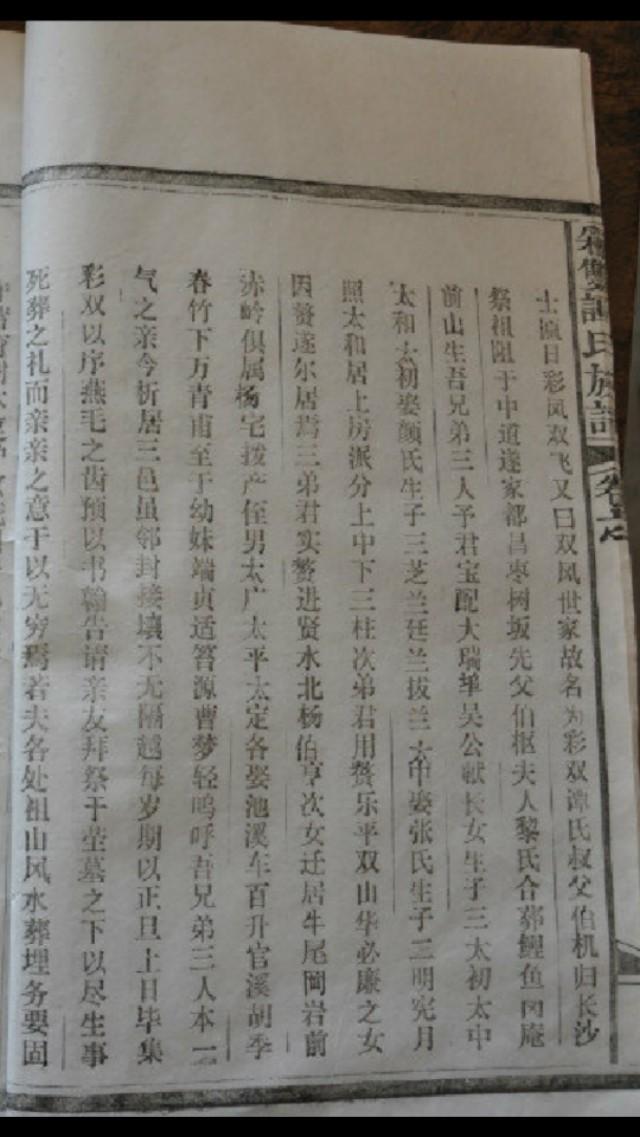 彩双谭氏族谱 卷之
士瀛目彩凤双飞又曰双凤世家故名为彩双谭氏叔父伯机归长沙
祭祖阻于中道遂家都昌枣树坂先父伯枢夫人黎氏合葬鲤鱼冈庵
前山生吾兄弟三人予君宝配大瑞埠吴公献长女生子三太初太中
太和太初娶颜氏生子三芝兰廷兰拔兰太中娶张氏生子二明宪月
照太和居上房派分上中下三柱次弟君用赘乐平双山华必廉之女
因赘遂尔居焉三弟君实赘进贤水北杨伯亨次女迁居牛尾岡岩前
赤岭俱属杨宅拨产侄男太广太平太定各娶池溪车百升官溪胡季
春竹下万青甫至于幼妹端贞适笤源曹梦轻呜呼吾兄弟三人本一
气之亲今析居三邑虽邻封接壤不无隔越每岁期以正旦上日毕集
彩双以序燕毛之齿预以书翰告请亲友拜祭于茔墓之下以尽生事
死葬之礼而亲亲之意于以无穷焉若夫各处祖山风水葬埋务要固